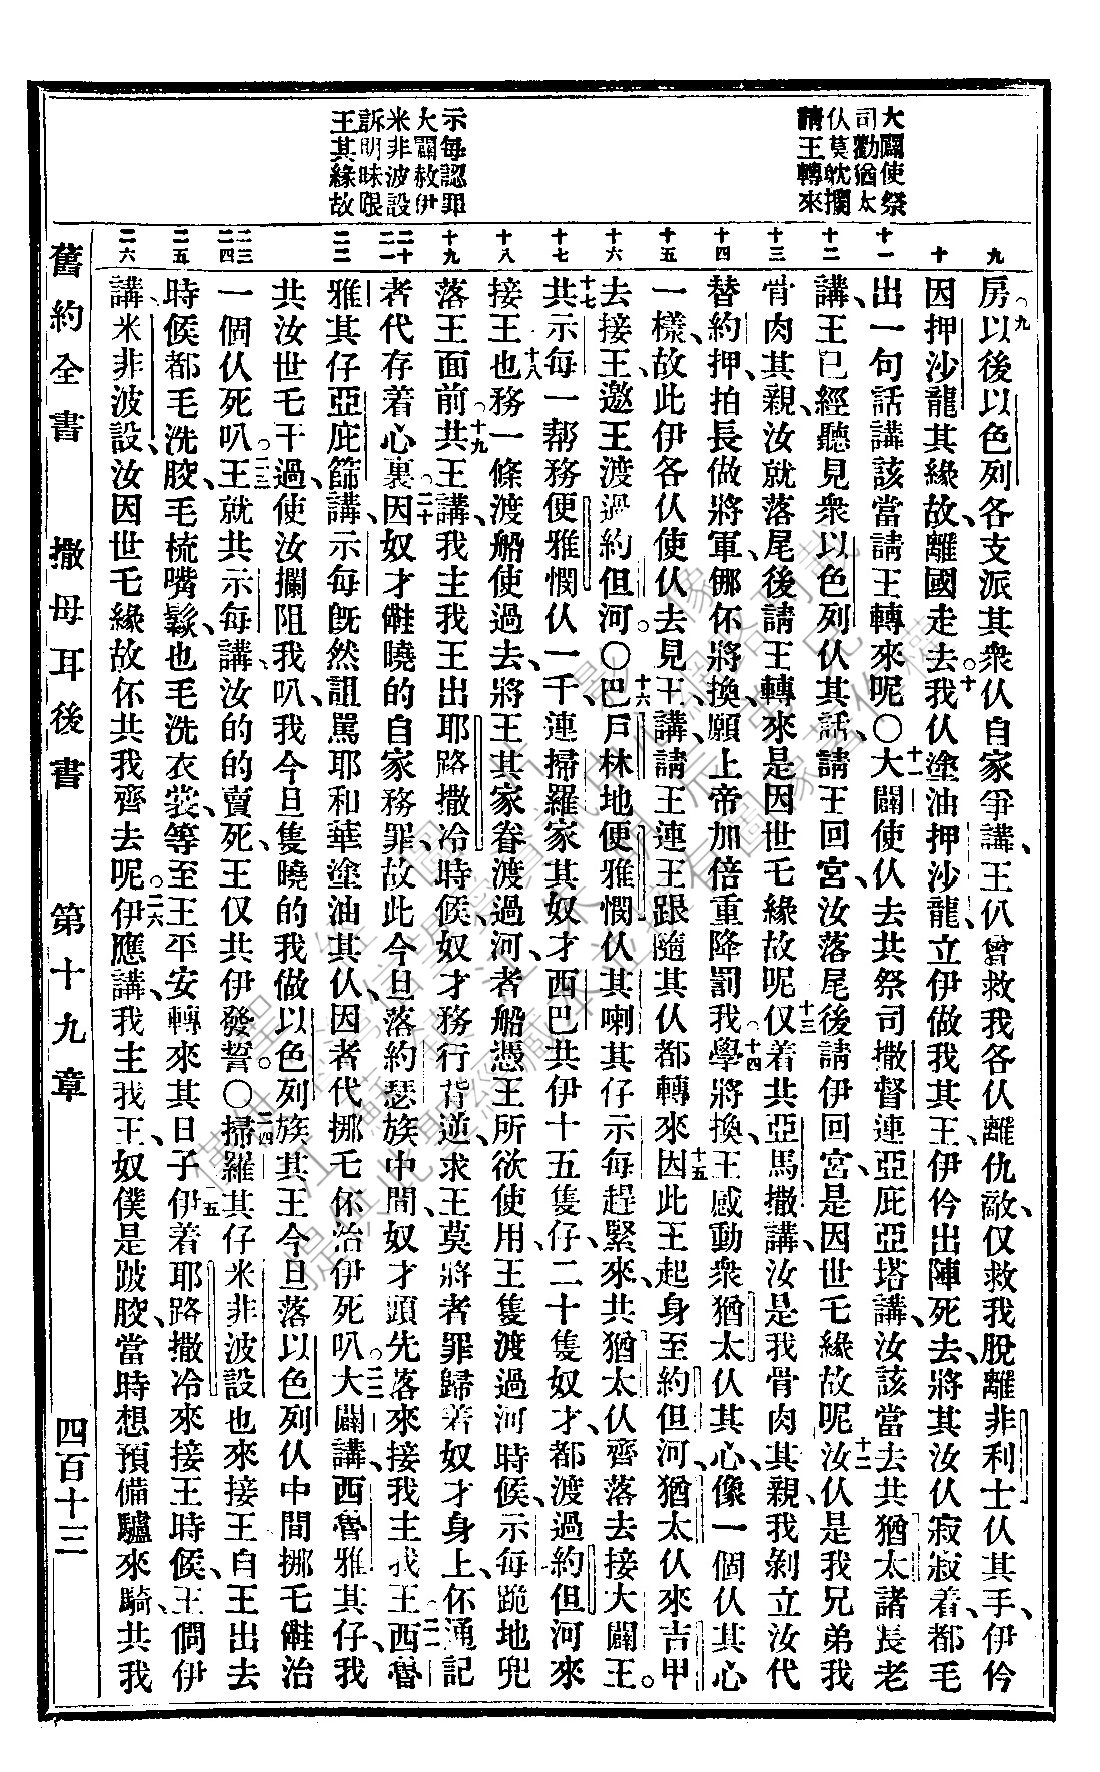 大闢使祭
司勸猶太
仈莫躭擱
請王轉來
示每認罪
大闢赦伊
米非波設
訴明昧限
王其緣故
九 十 十一 十二 十三 十四 十五 十六 十七 十八 十九 二十 二一 二二 二三 二四 二五 二六
房。九以後以色列各支派其衆仈自家爭講、王仈曾救我各仈離仇敵、仅救我脫離非利士仈其手、伊仱
因押沙龍其緣故、離國走去。十我仈塗油押沙龍、立伊做我其王、伊仱出陣死去、將其汝仈寂寂着、都毛
出一句話講該當請王轉來呢〇十一大闢使仈去共祭司撒督連亞庇亞塔講、汝該當去共猶太諸長老
講、王已經聽見衆以色列仈其話、請王回宮、汝落尾後請伊回宮、是因世乇緣故呢、十二汝仈是我兄弟我
骨肉其親、汝就落尾後請王轉來是因世乇緣故呢、十三仅着共亞馬撒講、汝是我骨肉其親、我剝立汝代
替約押、拍長做將軍、㑚伓將換、願上帝加倍重降罰我學將換、十四王感動衆猶太仈其心、像一個仈其心
一樣、故此伊各仈使仈去見王、講請王連王跟隨其仈都轉來、十五因此王起身至約但河、猶太仈來吉甲
去接王、邀王渡過約但河。〇十六巴戶林地便雅憫仈其喇其仔示每趕緊來、共猶太仈齊落去接大闢王。
十七共示每一帮務便雅憫仈一千、連掃羅家其奴才西巴共伊十五隻仔、二十隻奴才、都渡過約但河來
接王也十八務一條渡船使過去、將王其家眷渡過河、者船憑王所欲使用、王隻渡過河時候、示每跪地兜
落王面前、十九共王講、我主我王出耶路撒冷時候、奴才務行背逆、求王莫將者罪歸着奴才身上、伓通記
者代存着心裏。二十因奴才雔曉的自家務罪、故此今旦落約瑟族中間、奴才頭先落來接我主我王。二一西魯
雅其仔亞庇篩講、示每既然詛罵耶和華塗油其仈、因者代挪乇伓治伊死叭。二二大闢講、西魯雅其仔、我
共汝世乇干過、使汝攔阻我叭、我今旦隻曉的我做以色列族其王、今旦落以色列仈中間挪乇雔治
一個仈死叭。二三王就共示每講、汝的的賣死、王仅共伊發誓。〇二四掃羅其仔米非波設也來接王、自王出去
時候都毛洗骹、毛梳嘴鬚、也毛洗衣裳、等至王平安轉來其日子、二五伊着耶路撒冷來接王時候、王問伊
講、米非波設、汝因世乇緣故伓共我齊去呢。二六伊應講、我主我王、奴僕是跛骹、當時想預備驢來騎、共我
舊約全書 撒母耳後書 第十九章 四百十三